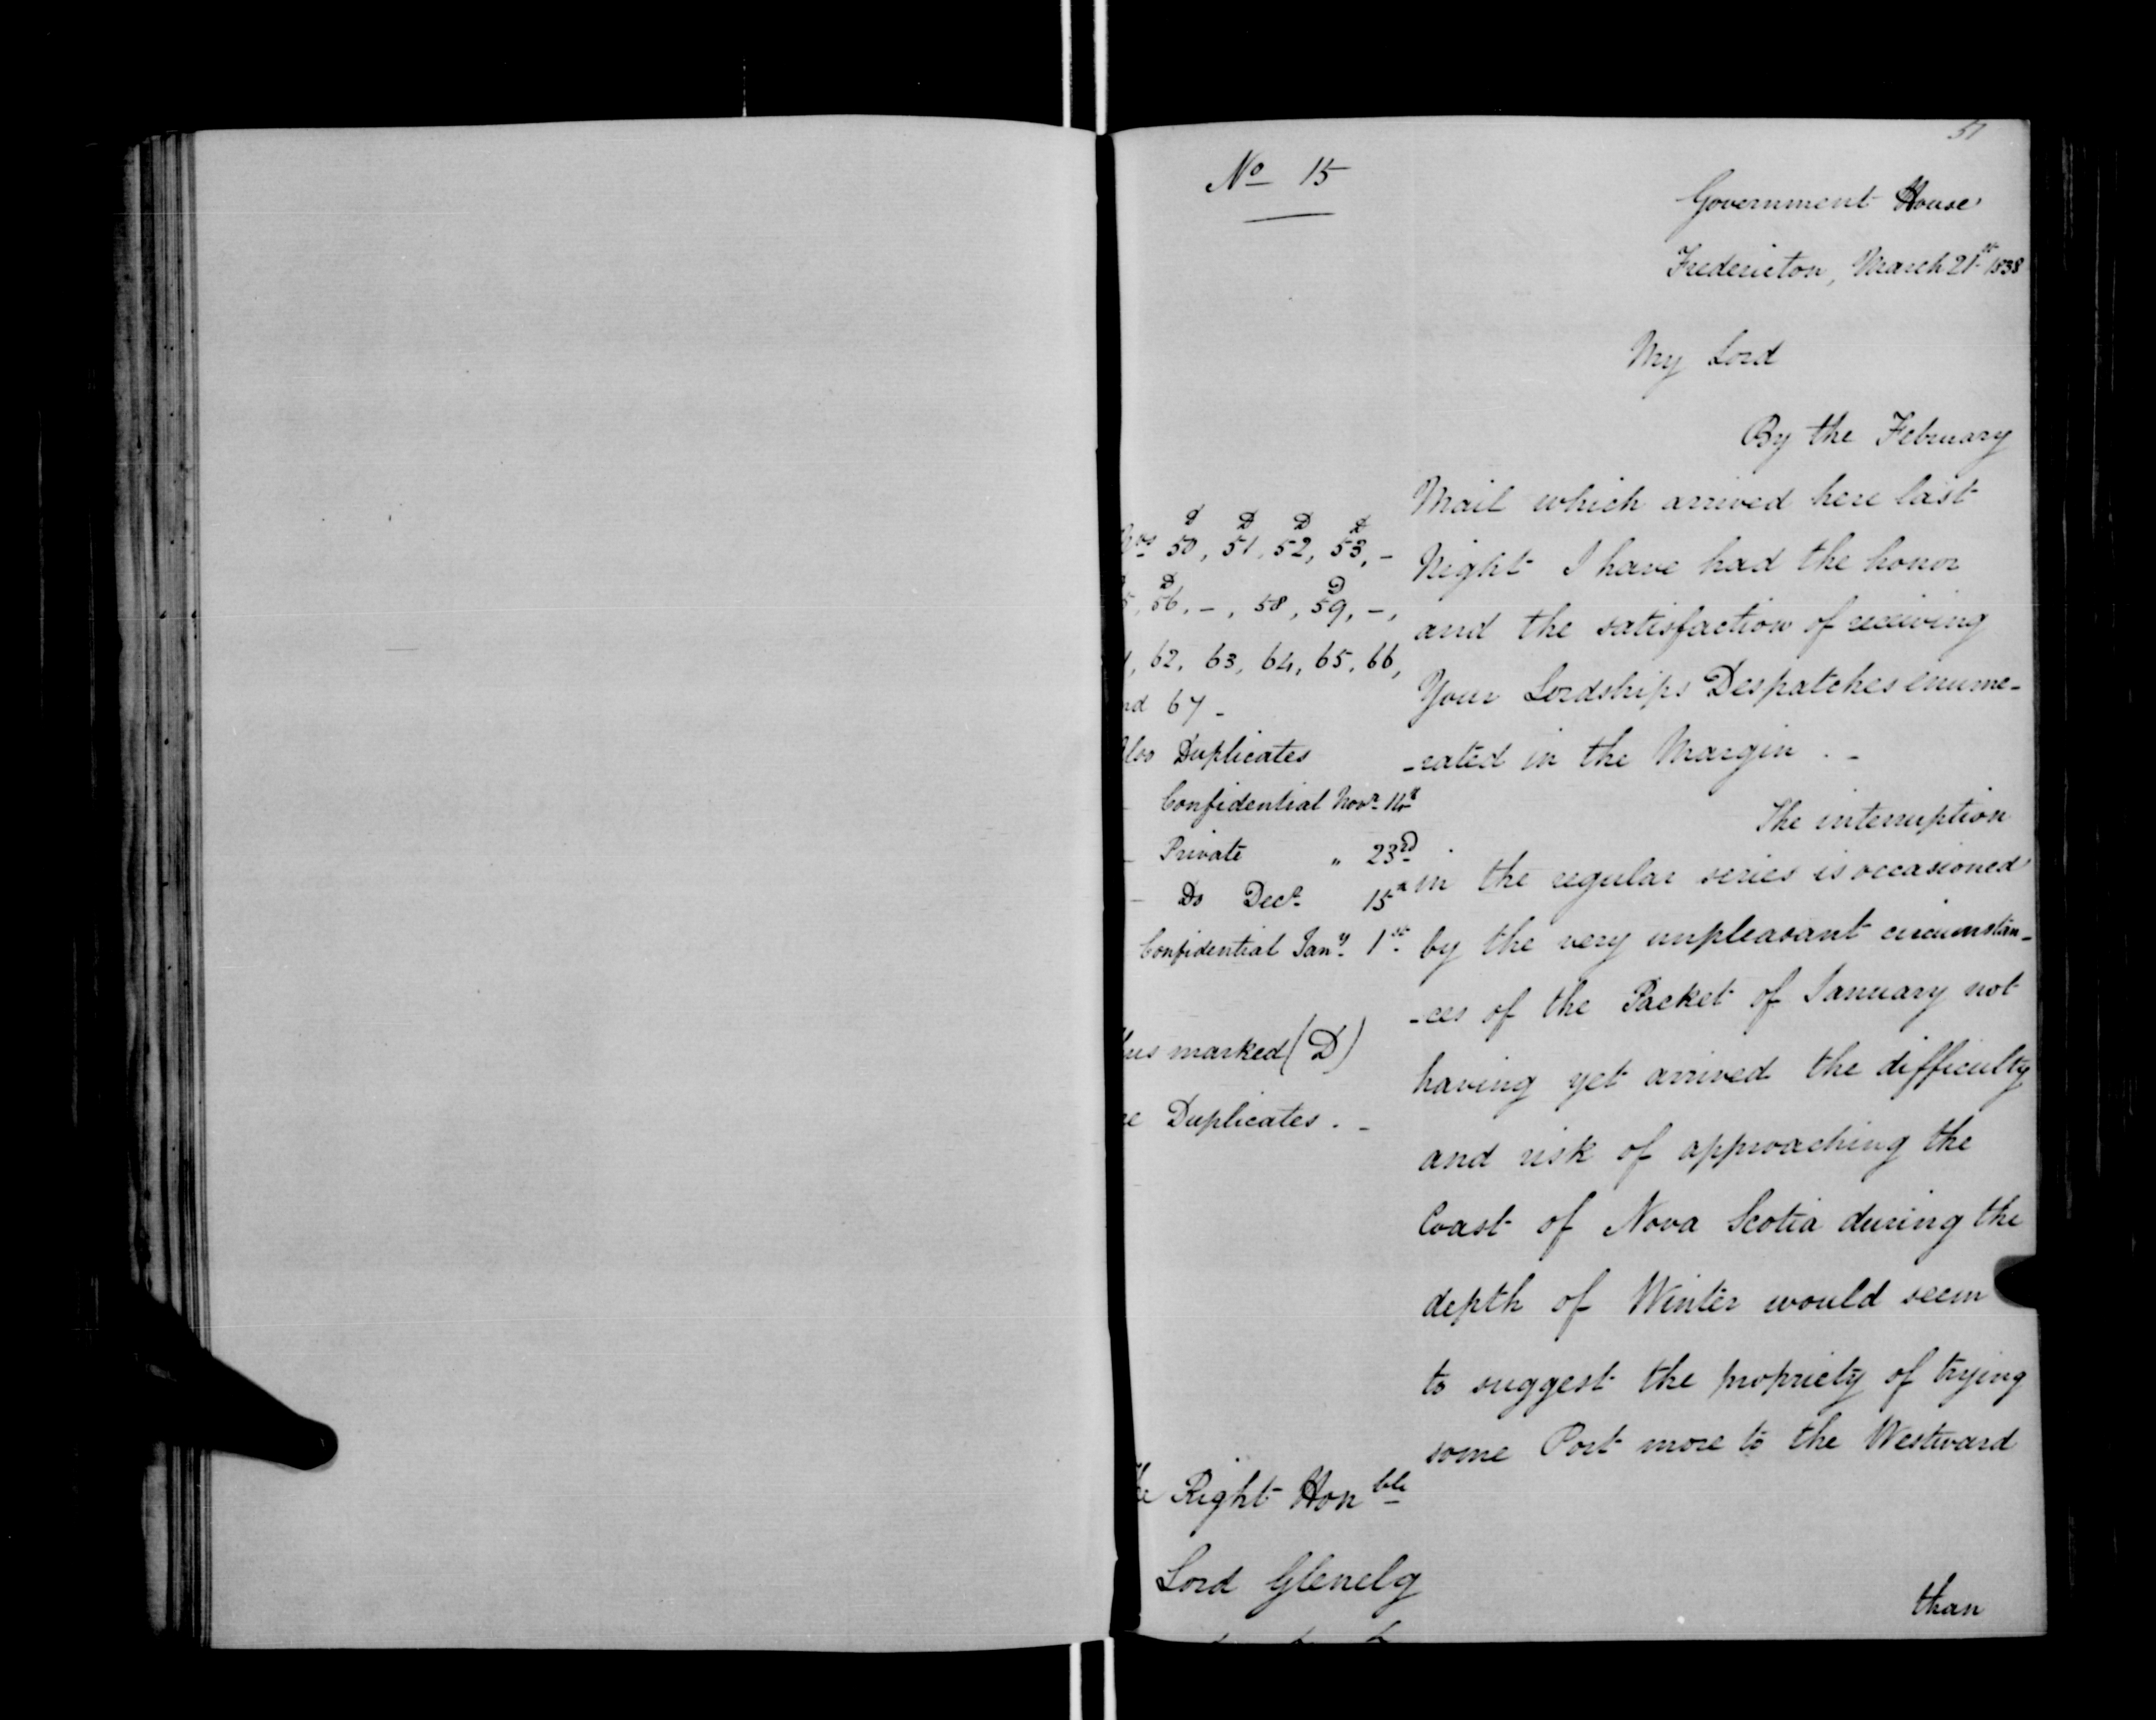 51
No 15
Government House
Fredericton, March 21st 1838
My Lord
By the February
Mail which arrived here last
Night I have had the honor
and the satisfaction of receiving
Your Lordships Despatches enume-
-rated in the Margin . -
The interruption
in the regular series is occasioned
by the very unpleasant circumstan-
-ces of the Packet of January not
having yet arrived the difficulty
and risk of approaching the
Coast of Nova Scotia during the
depth of Winter would seem
to suggest the propriety of trying
some Port more to the Westward
than
D D D D
Nos 50, 51, 52, 53, -
D D
5, 56, -, 58, 59, -,
1, 62, 63, 64, 65, 66,
nd 67 -
Also Duplicates
- Confidential Novr
- Private " 23rd
- Do Decr 15th
Confidential Jany 1st
hus marked (D)
re Duplicates . -
he Right Honble
Lord Glenelg